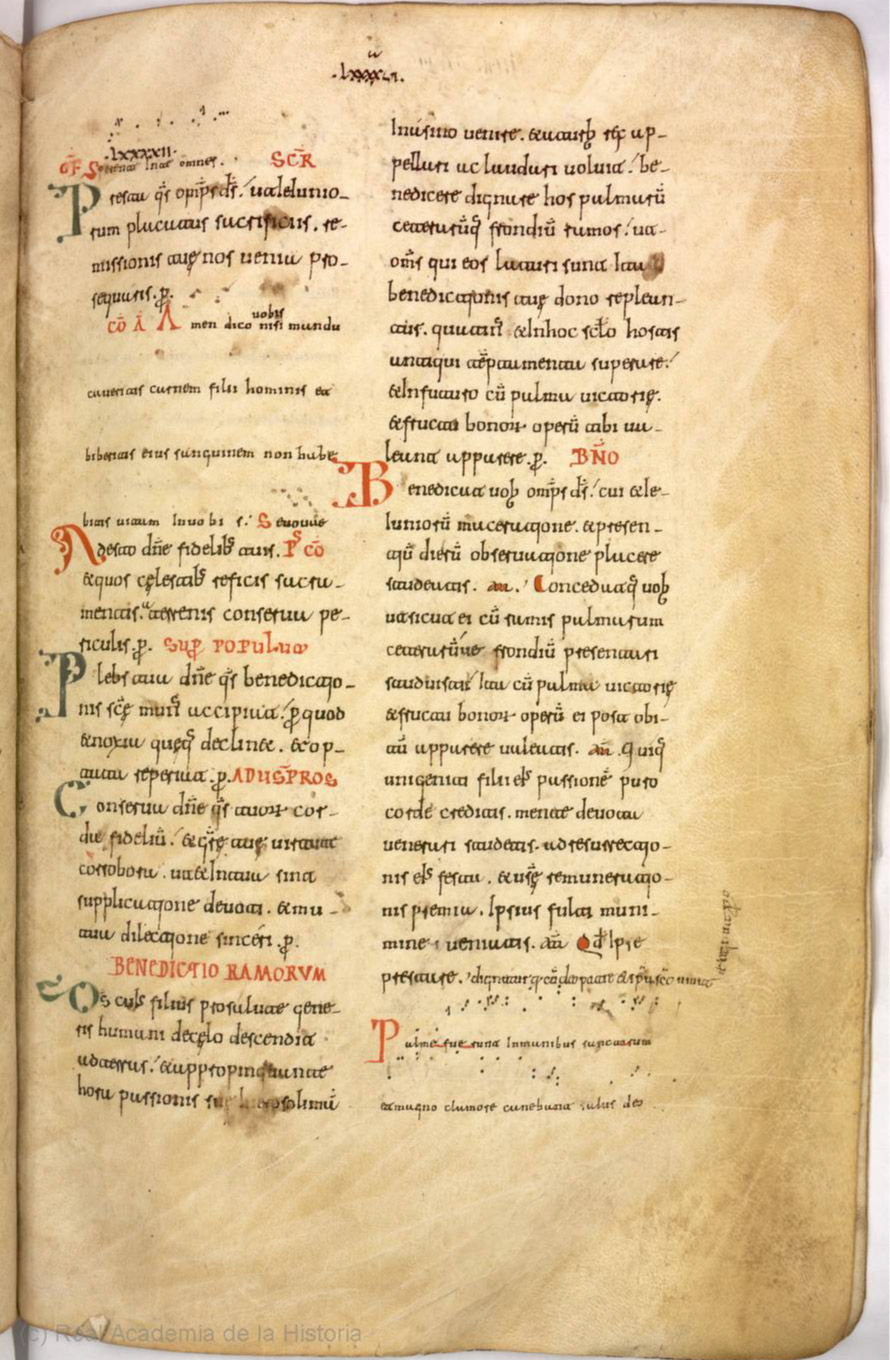 .lxxxvi.
.lxxxxii.
OF̄ Sperent in te omnes. SCR̄
Presta q̄s omp̄s d̄s. ut ieiunio-
rum placatus sacrificiis. re-
missionis tue nos uenia pro-
sequaris. p.
CŌ Ā Amen dico uobis nisi mandu
caueritis carnem filii hominis et
biberitis eius sanguinem non habe
bitis uitam in uobis. Seuouae
Adesto dn̄e fidelib; tuis. Ps CŌ
et quos celestib; reficis sacra-
mentis. a terrenis conserua pe-
riculis. p. SUP POPULUM
Plebs tua dn̄e q̄s benedictio-
nis sc̄e mun̄ accipiat. p quod
et noxia queq; declinet. et op-
tata reperiat. p. AD US̄PROS
Conserua dn̄e q̄s tuor cor-
da fideliū. et gr̄e tue uirtute
corrobora. ut et in tua sint
supplicatione deuoti. et mu-
tua dilectione sinceri. p.
BENEDICTIO RAMORVM
Ds cuis filius pro salute gene-
ris humani de celo descendit
ad terras. et appropinquante
hora passionis sue hierosolimā
In asino uenire. et a turb; rex ap-
pellari ac laudari uoluit. be-
nedicere dignare hos palmarū
ceterarūq; frondiū ramos. ut
om̄s qui eos laturi sunt ita
benedictionis tue dono replean-
tur. quatin̄ et in hoc sclo hostis
antiqui teptamenta superare.
et in futuro cū palma uictorie.
et fructu bonor operū tibi ua-
leant apparere. p. BN̄O
Benedicat uob omp̄s d̄s. cui et ie-
iuniorū maceratione. et presen-
tiū dierū obseruatione placere
studeatis. am. Concedatq; uob
ut sicut ei cū ramis palmarum
ceterarūue frondiū presentari
studuistis ita cū palma uictorie
et fructu bonor operū ei post obi-
tū apparere ualeatis. am. Quiq;
unigeniti filii ei; passionē puro
corde creditis. mente deuota
uenerari studetis. ad resurrectio-
nis ei; festa. et use remuneratio-
nis premia. Ipsius fulti muni-
mine ueniatis. am Qd̄ ipse
prestare. dignetur q cū dō patre et sp̄u sc̄o uiuit
Palme fuerunt in manibus sanctorum
et magno clamore canebant salus deo